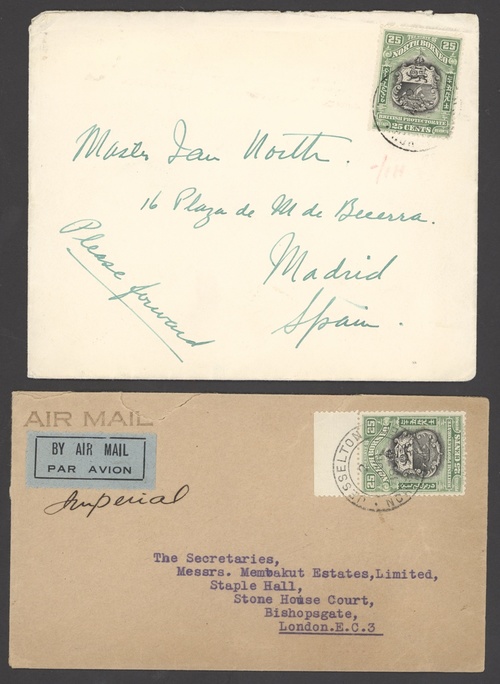 25 THE STATE OF 25
NORTH BORNEO
BRITISH PROTECTORATE
25 CENTS
Master Ian North.
16 Plaza de M de Becerra.
Madrid
Spain.
Please forward
AIR MAIL
BY AIR MAIL
PAR AVION
Imperial
JESSELTON
25
25
25 CENTS
The Secretaries,
Messrs. Membakut Estates,Limited,
Staple Hall,
Stone House Court,
Bishopsgate,
London.E.C.3